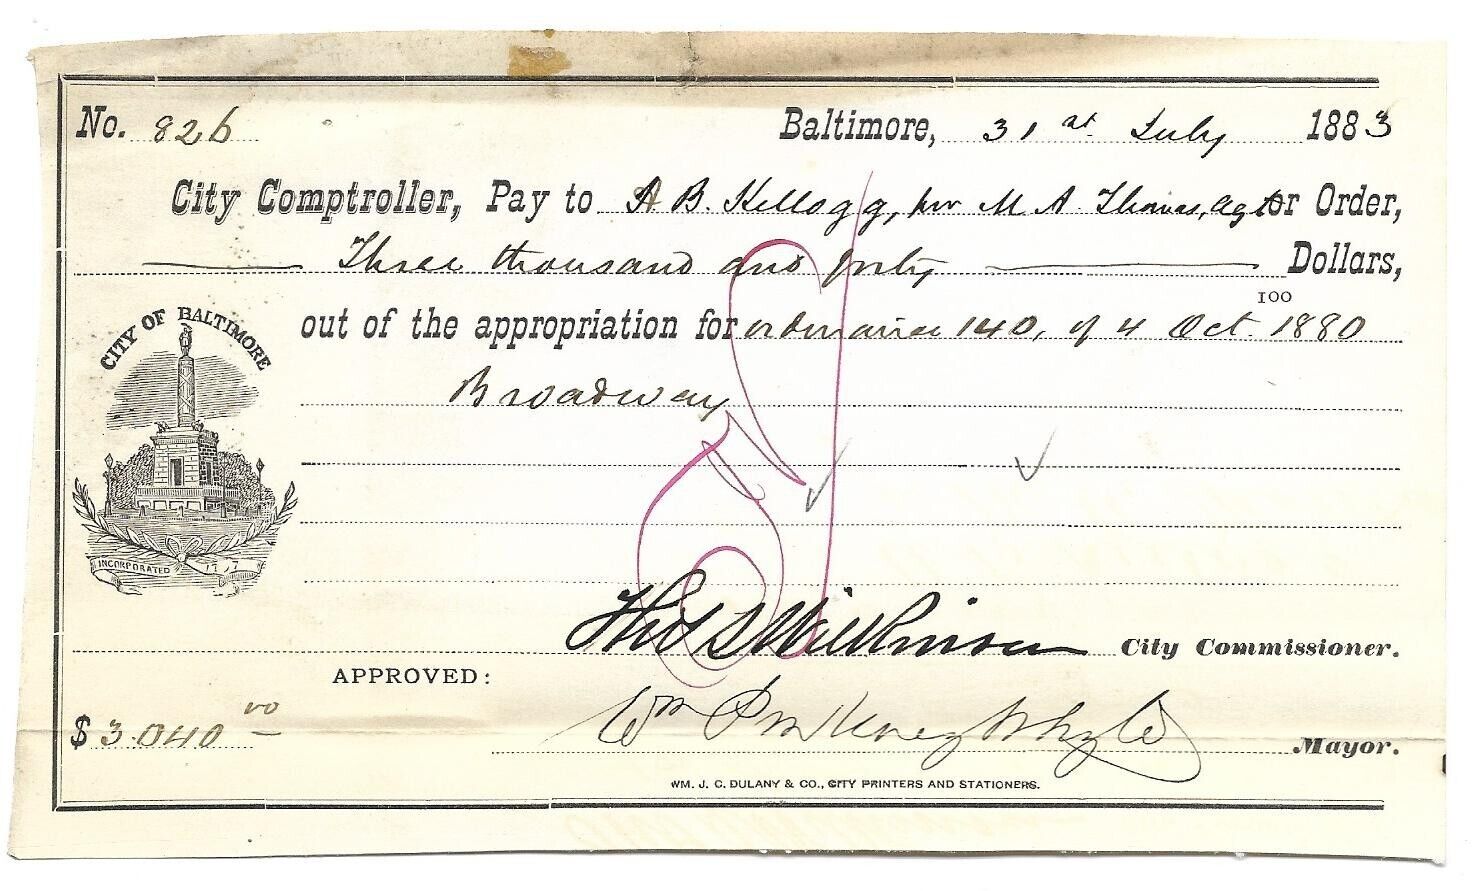 No. 826 Baltimore, 31st July 1883
City Comptroller, Pay to A B. Kellogg, per M A. Thomas, agt or Order,
Three thousand and forty Dollars,
100
out of the appropriation for ordinance 140, of 4 Oct. 1880
Broadway
CITY OF BALTIMORE
INCORPORATED 1797
Thos S Wilkinson City Commissioner.
APPROVED:
$ 3.040 00
Wm Pinkney Whyte Mayor.
WM. J. C. DULANY & CO., CITY PRINTERS AND STATIONERS.